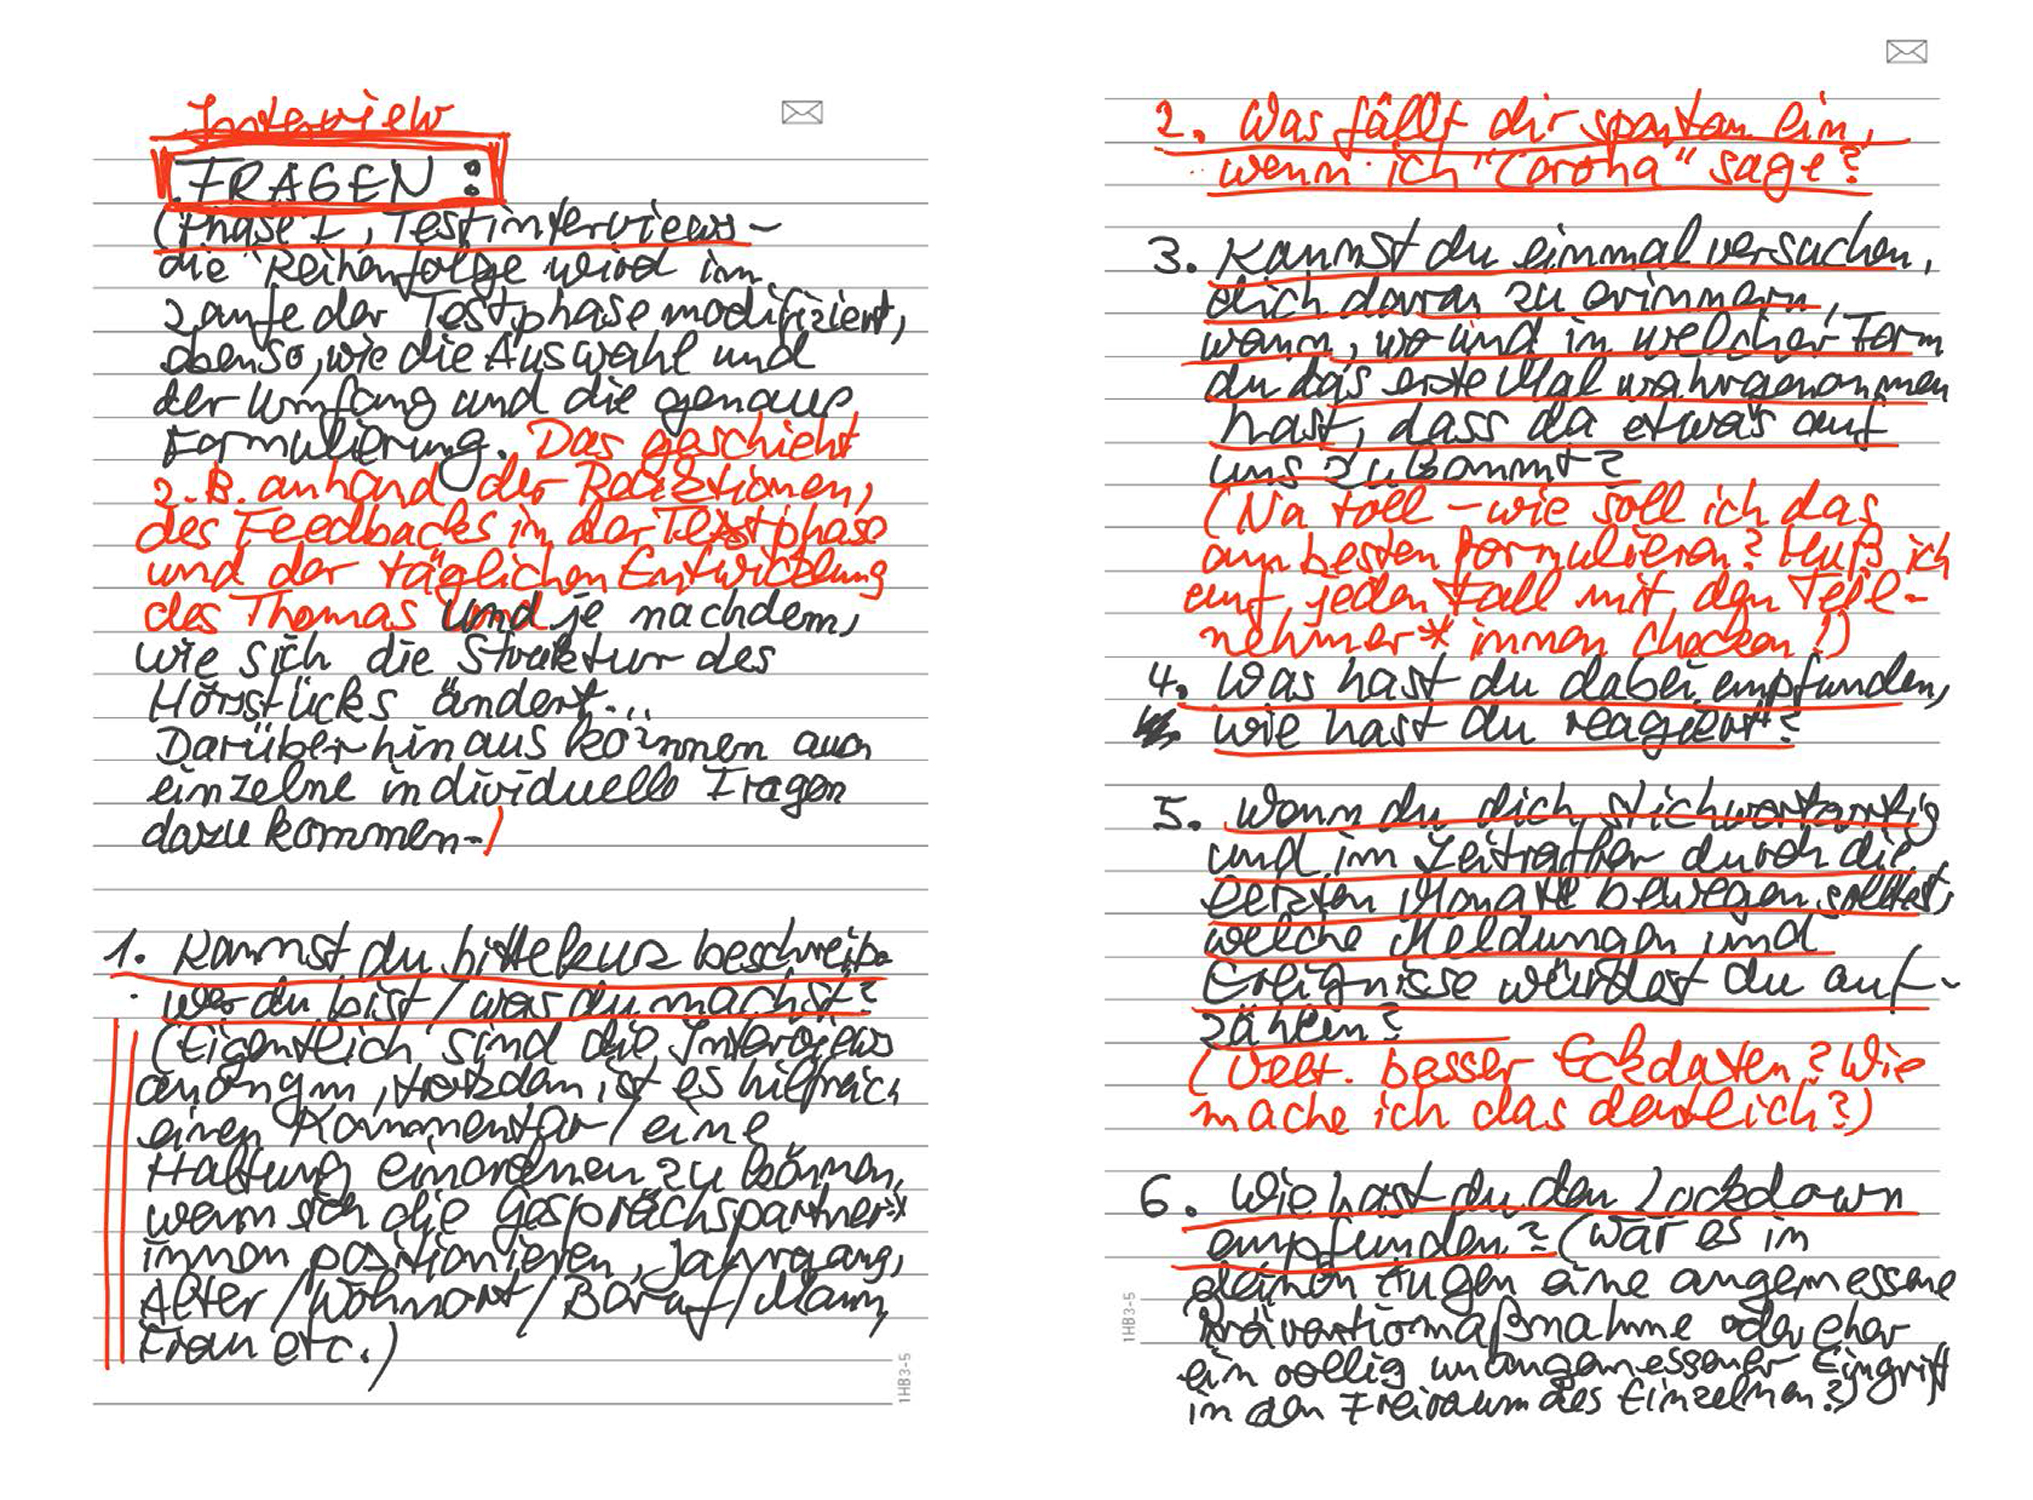 Interview
FRAGEN :
(Phase 1, Testinterviews –
die Reihenfolge wird im
Laufe der Testphase modifiziert,
ebenso, wie die Auswahl und
der Umfang und die genaue
Formulierung. Das geschieht
z.B. anhand der Reaktionen,
des Feedbacks in der Testphase
und der täglichen Entwicklung
des Themas und je nachdem,
wie sich die Struktur des
Hörstücks ändert...
Darüber hinaus können auch
einzelne individuelle Fragen
dazu kommen-)
1. Kannst du bitte kurz beschreibe
wer du bist / was du machst?
(Eigentlich sind die Interviews
anonym, trotzdem ist es hilfreich
einen Kommentar / eine
Haltung einordnen zu können,
wenn sich die Gesprächspartner*
innen positionieren, Jahrgang,
Alter / Wohnort / Beruf / Mann,
Frau etc.)
1HB3-5
2. Was fällt dir spontan ein,
wenn ich "Corona" sage?
3. Kannst du einmal versuchen,
dich daran zu erinnern,
wann, wo und in welcher Form
du das erste Mal wahrgenommen
hast, dass da etwas auf
uns zukommt?
(Na toll – wie soll ich das
am besten formulieren? Muß ich
auf jeden Fall mit den Teil-
nehmer*innen checken!)
4. Was hast du dabei empfunden,
wie hast du reagiert?
5. Wenn du dich stichwortartig
und im Zeitraffer durch die
letzten Monate bewegen solltest,
welche Meldungen und
Ereignisse würdest du auf-
zählen?
(Velt. besser Eckdaten? Wie
mache ich das deutlich?)
6. Wie hast du den Lockdown
empfunden? (War es in
deinen Augen eine angemessene
Präventionmaßnahme oder eher
ein völlig unangemessener Eingriff
in den Freiraum des Einzelnen?)
1HB3-5